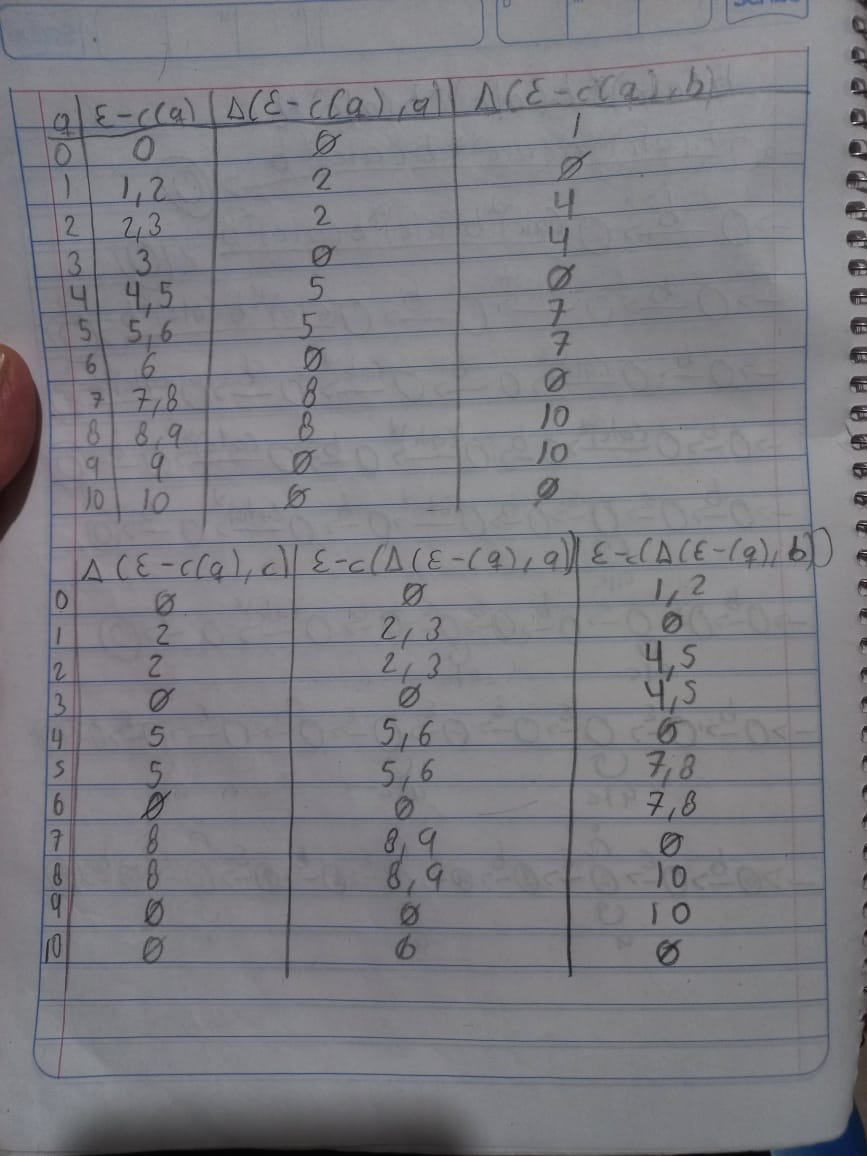 q | ε-c(q) | Δ(ε-c(q),a) | Δ(ε-c(q),b)
0 | 0 | ∅ | 1
1 | 1,2 | 2 | ∅
2 | 2,3 | 2 | 4
3 | 3 | ∅ | 4
4 | 4,5 | 5 | ∅
5 | 5,6 | 5 | 7
6 | 6 | ∅ | 7
7 | 7,8 | 8 | ∅
8 | 8,9 | 8 | 10
9 | 9 | ∅ | 10
10 | 10 | ∅ | ∅
Δ(ε-c(q),c) | ε-c(Δ(ε-(q),a)) | ε-c(Δ(ε-(q),b))
0 | ∅ | ∅ | 1,2
1 | 2 | 2,3 | ∅
2 | 2 | 2,3 | 4,5
3 | ∅ | ∅ | 4,5
4 | 5 | 5,6 | ∅
5 | 5 | 5,6 | 7,8
6 | ∅ | ∅ | 7,8
7 | 8 | 8,9 | ∅
8 | 8 | 8,9 | 10
9 | ∅ | ∅ | 10
10 | ∅ | ∅ | ∅